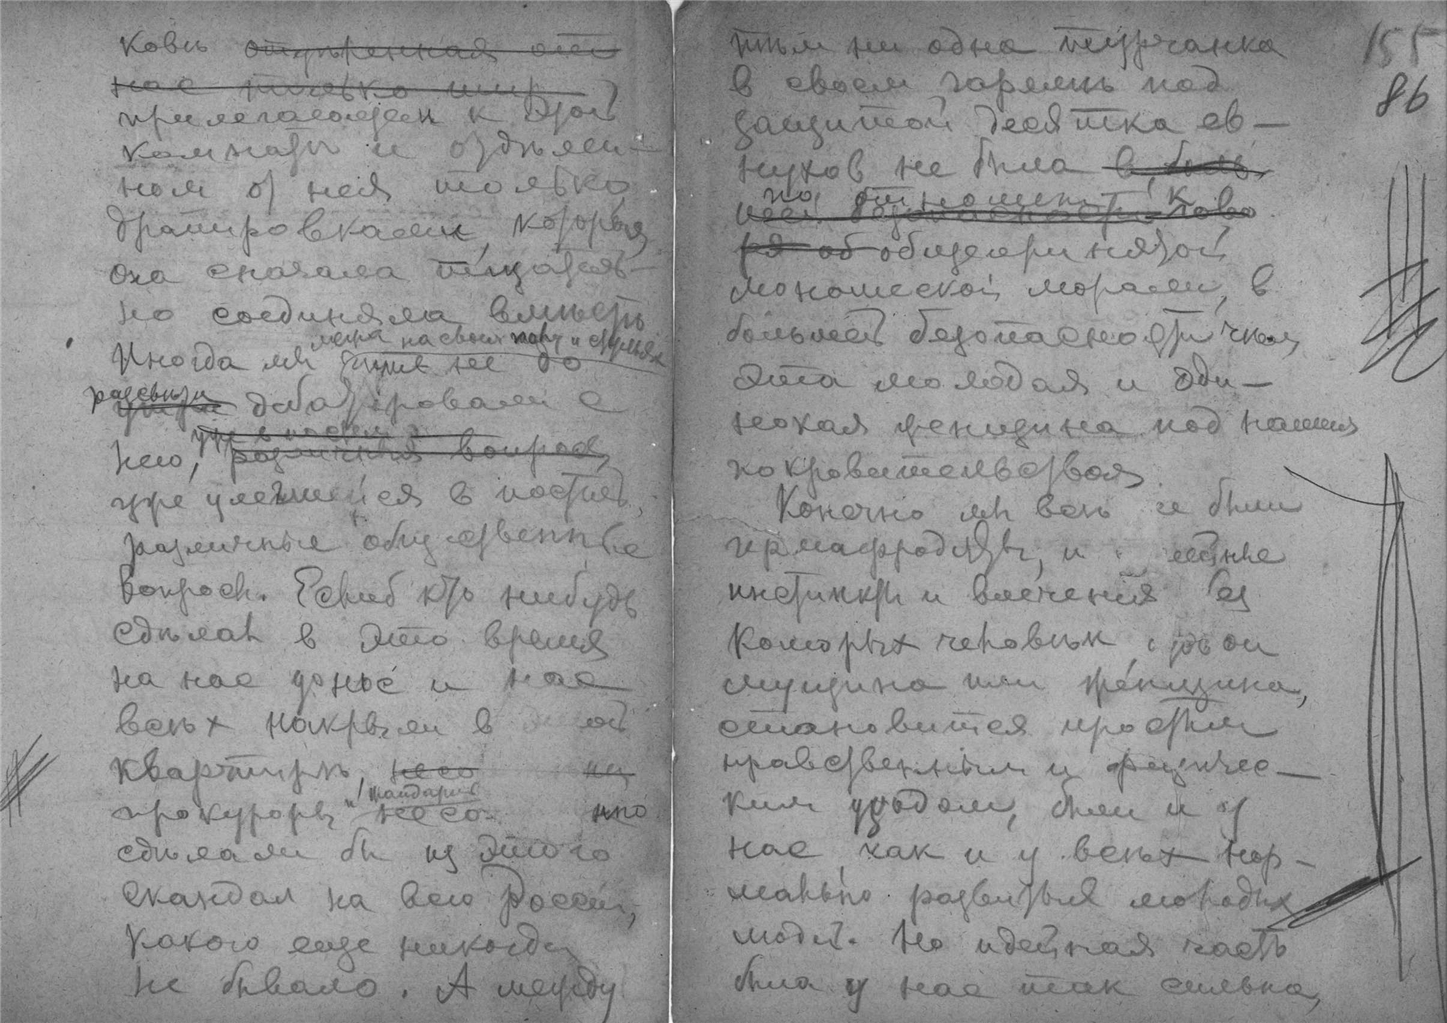 ковь отделенная от
нас только шир
прилегающей к этой
комнаты и отделен-
ном от нея только
драпировками, которыя
она сначала тщатель-
но соединяла вместе
Иногда мы лежа на своих полу и стульях чуть не до
разсвета утра дебатировали с
нею, уже в постели различные вопросы
уже улегшейся в постель,
различные общественные
вопросы. Еслиб кто нибудь
сделал в это время
на нас донос и нас
всех накрыли в этой
квартире,
прокуроры и жандармы
сделали бы из этого
скандал на всю Россию,
какого еще никогда
не бывало. А между
тем ни одна турчанка
в своем гареме под
защитой десятка ев-
нухов не была в боль
по отношению к
ря об общепринятой
моношеской морали, в
большей безопасности чем
эта молодая и оди-
нокая женщина под нашим
покровительством
Конечно мы все не были
гермафродиты, и
инстинкты и влечения без
которых человек,
мущина или женщина,
становится простым
нравственным и физичес-
ким уродом, были и у
нас как и у всех нор-
мально развитых молодых
людей. Но идейная часть
была у нас так сильна,
155
86